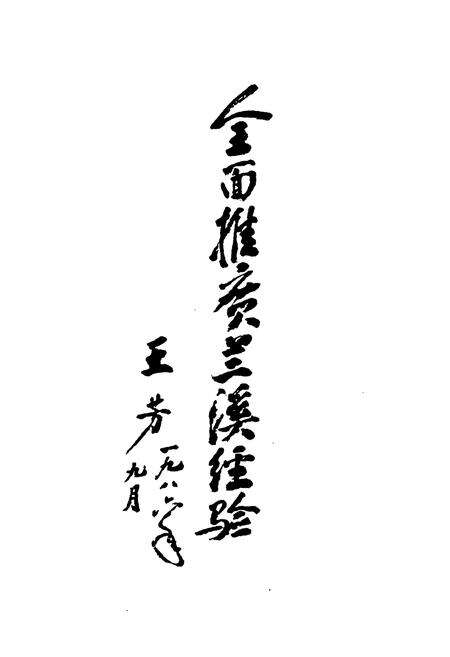 全面推廣兰溪经验
王芳
一九八六年
九月